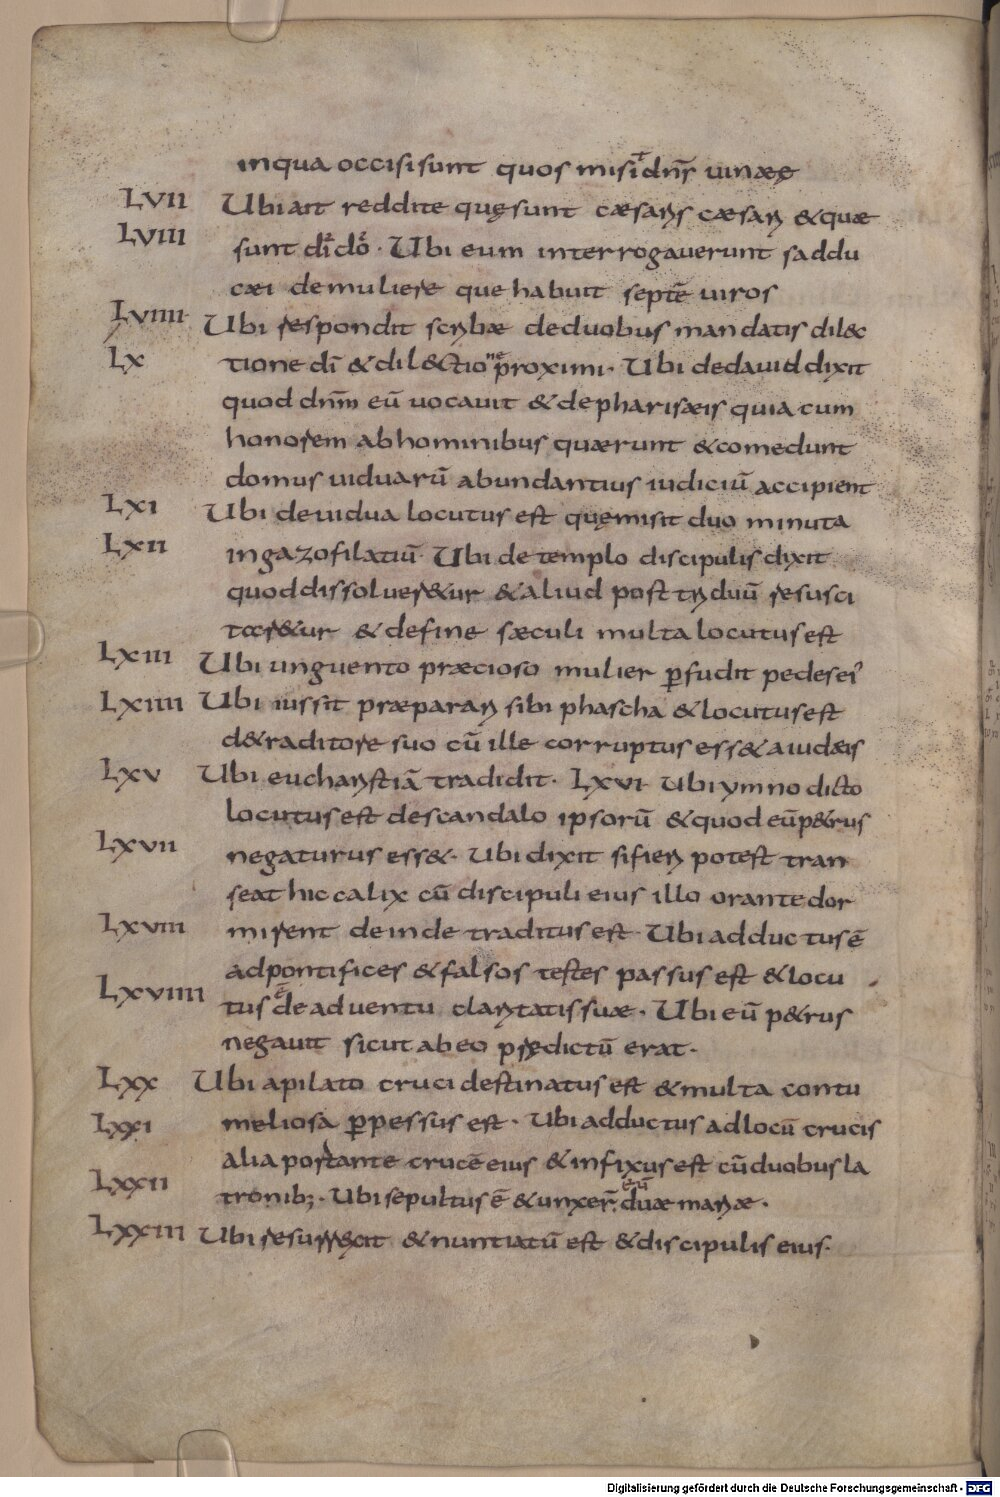 inqua occisi sunt quos misit dn̅s uinæę
LVII Ubi ait reddite quęsunt cæsaris cæsari &quæ
LVIII sunt di̅ do̅ · Ubi eum interrogauerunt saddu
cæi demuliere que habuit septe̅ uiros
LVIIII Ubi respondit scribæ deduobus mandatis dil&c
LX tione di̅ & dil&ctione proximi · Ubi dedauid dixit
quod dn̅m eu̅ uocauit & depharisæis quia cum
honorem abhominibus quærunt & comedunt
domus uiduaru̅ abundantius iudiciu̅ accipient
LXI Ubi deuidua locutus est quęmisit duo minuta
LXII ingazofilatiu̅ · Ubi de templo discipulis dixit
quod dissoluer&ur & aliud post triduu̅ resusci
tar&ur & define sæculi multa locutus est
LXIII Ubi unguento præcioso mulier p̲fudit pedes ei'
LXIIII Ubi iussit præparari sibi phascha & locutus est
d&raditore suo cu̅ ille corruptus ess& aiudæis
LXV Ubi eucharistia̅ tradidit · LXVI Ubi ymno dicto
locutus est descandalo ipsoru̅ & quod eu̅ p&rus
LXVII negaturus ess& · Ubi dixit si fieri potest tran
seat hic calix cu̅ discipuli eius illo orante dor
LXVIII mirent deinde traditus est Ubi adductus e̅
adpontifices & falsos testes passus est & locu
LXVIIII tus e̅ de aduentu claritatis suæ · Ubi eu̅ p&rus
negauit sicut abeo prędictu̅ erat ·
LXX Ubi apilato cruci destinatus est & multa contu
LXXI meliosa p̲pessus est · Ubi adductus adlocu̅ crucis
alia portante cruce̅ eius & infixus est cu̅ duobus la
LXXII tronib; · Ubi sepultus e̅ & unxer̅ eu̅ duæ mariæ ·
LXXIII Ubi resurrexit & nuntiatu̅ est & discipulis eius ·
Digitalisierung gefördert durch die Deutsche Forschungsgemeinschaft - DFG